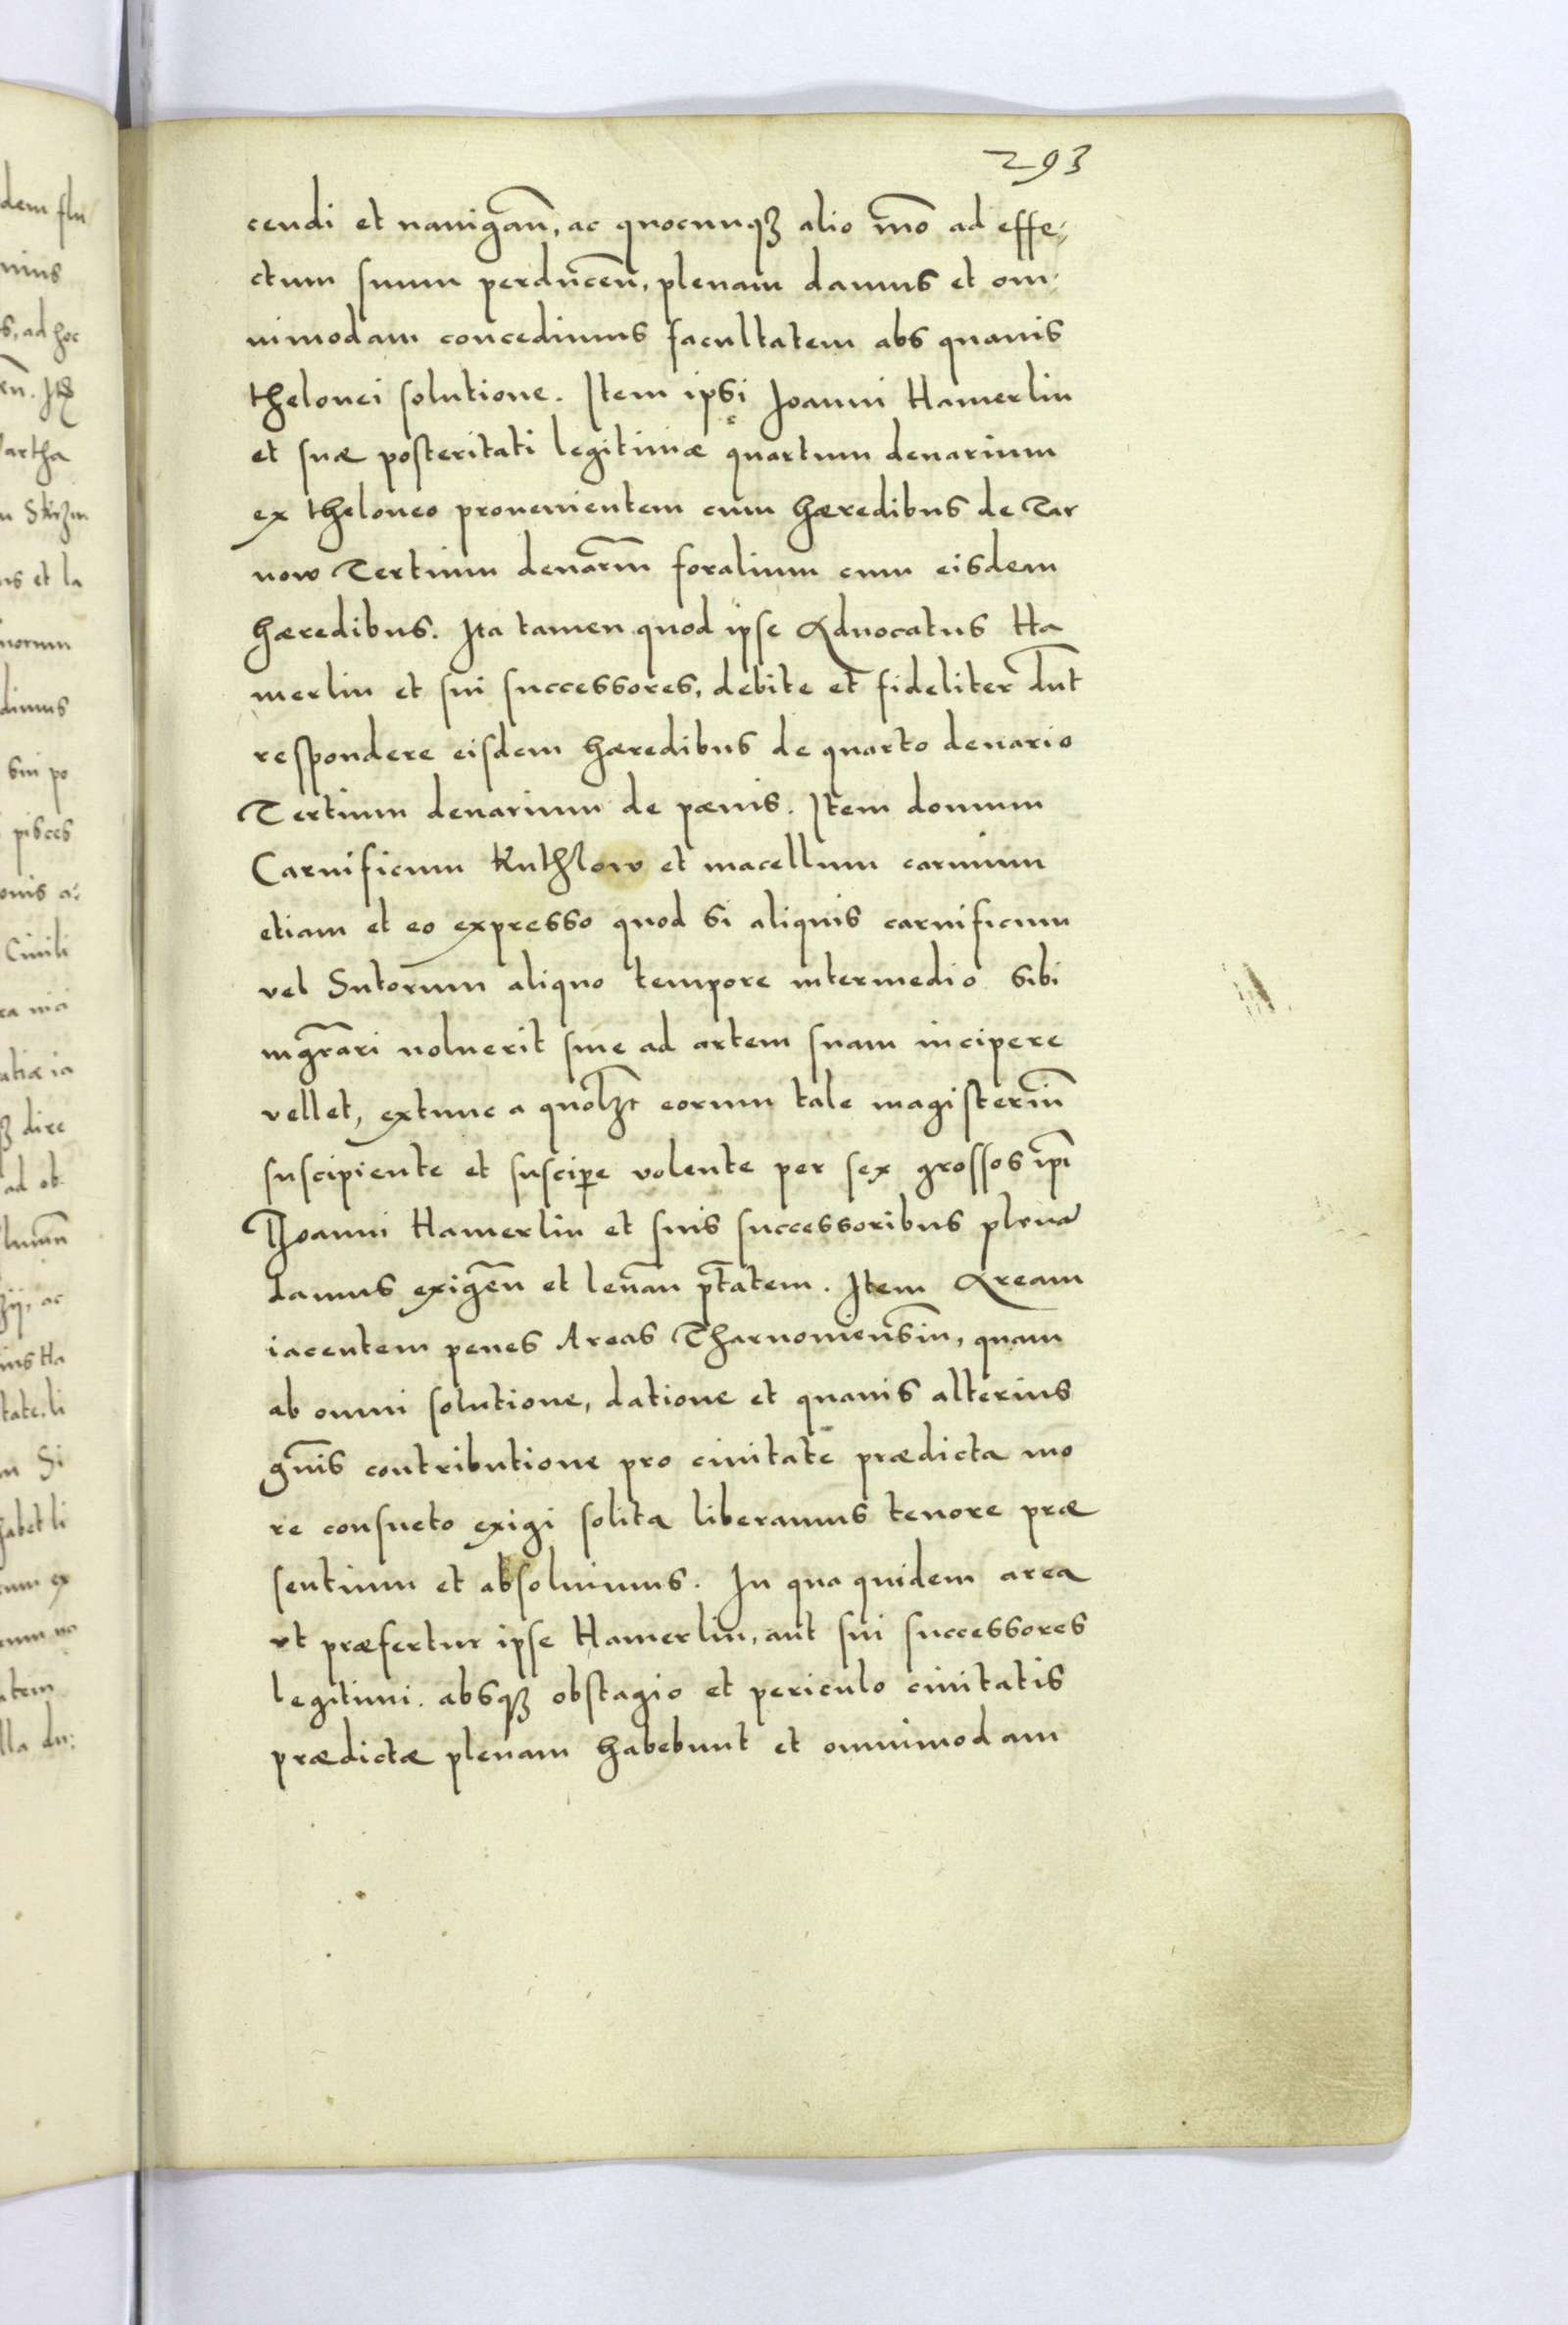 293
cendi et nauigan̄, ac quocunqꝫ alio mō ad effe,
ctum suum perducen̄, plenam damus et om
nimodam concedimus facultatem abs quauis
thelonei solutione. Item ipsi Joanni Hamerlin
et suæ posteritati legitimæ quartum denarium
ex theloneo prouenientem cum hæredibus de Tar
now Tertium denar̄m foralium cum eisdem
hæredibus. Ita tamen quod ipse Aduocatus Ha
merlin et sui successores, debite et fideliter dn̄t
respondere eisdem hæredibus de quarto denario
Tertium denarium de pænis. Item domum
Carnificum Kuthlow et macellum carnium
etiam et eo expresso quod si aliquis carnificum
vel Sutorum aliquo tempore intermedio sibi
ingr̄ari voluerit siue ad artem suam incipere
vellet, extunc a quolꝫt eorum tale magisteriū
suscipiente et suscipe volente per sex grossos ip̄i
Joanni Hamerlin et suis successoribus plenā
damus exigen̄ et leuan̄ ptātem. Item Aream
iacentem penes Areas Tharnouiensiū, quam
ab omni solutione, datione et quauis alterius
gn̄is contributione pro ciuitate prædicta mo
re consueto exigi solita liberamus tenore præ
sentium et absoluimus. In qua quidem area
vt præfertur ipse Hamerlin, aut sui successores
legitimi. absqꝫ obstagio et periculo ciuitatis
prædictæ plenam habebunt et omnimodam